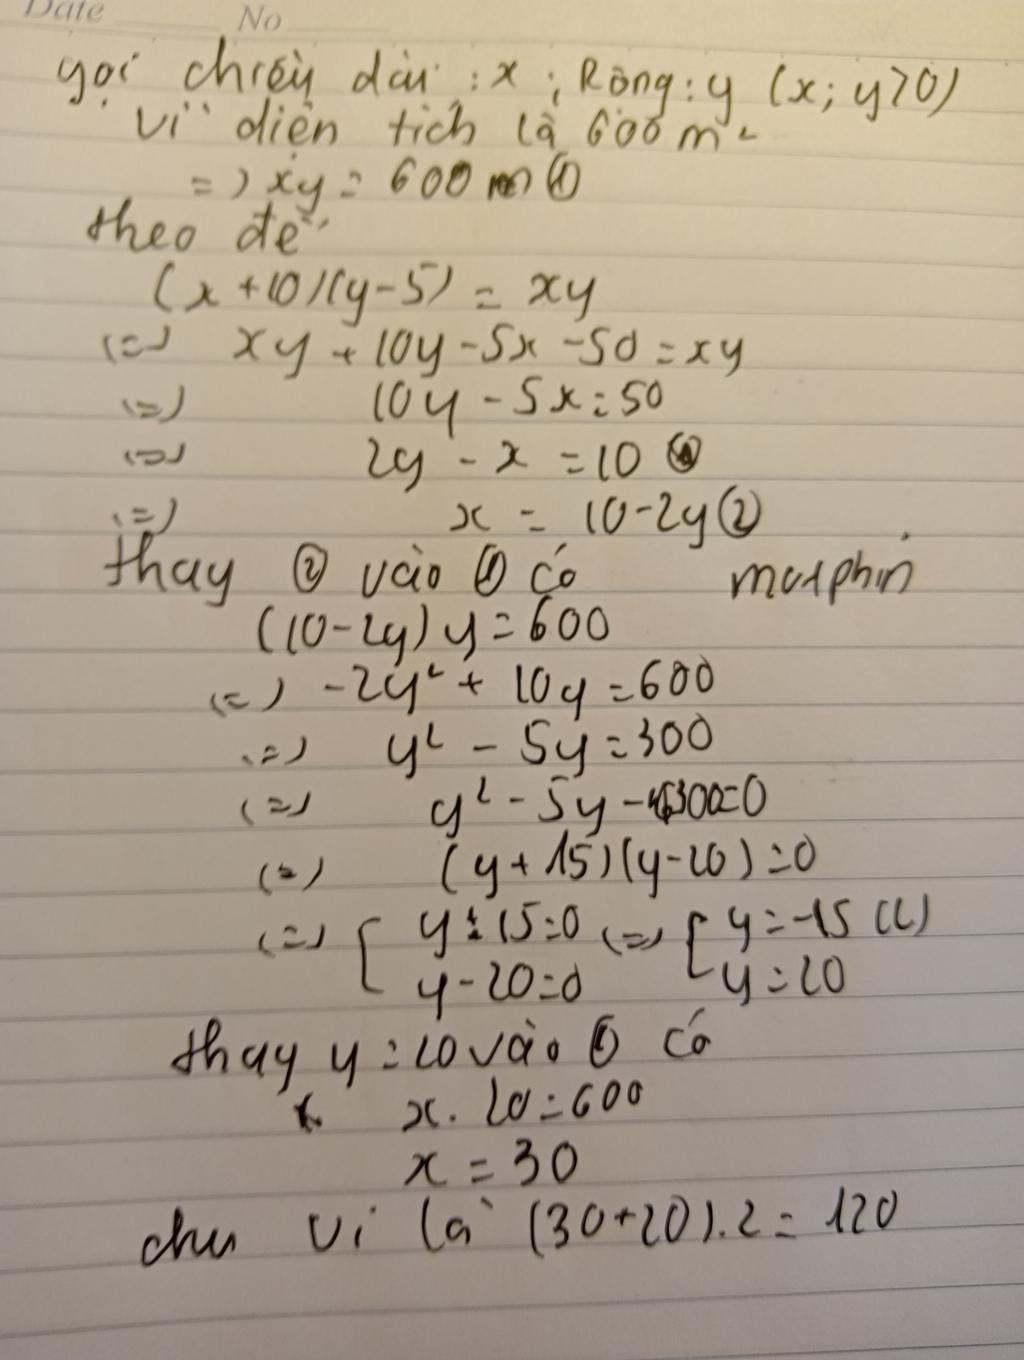 Date No
gọi chiều dài : x ; Rộng : y (x; y>0)
Vì diện tích là 600 m²
=) xy = 600 m ①
theo đề
(x+10)(y-5) = xy
(=) xy + 10y - 5x - 50 = xy
(=) 10y - 5x = 50
(=) 2y - x = 10
(=) x = 10 - 2y ②
thay ② vào ① có
(10-2y) y = 600
(=) -2y² + 10y = 600
(=) y² - 5y = 300
(=) y² - 5y - 300 = 0
(=) (y + 15)(y - 20) = 0
(=) [ y + 15 = 0 (=) [ y = -15 (L)
y - 20 = 0 y = 20
thay y = 20 vào ① có
x. 20 = 600
x = 30
chu vi là (30+20).2 = 120